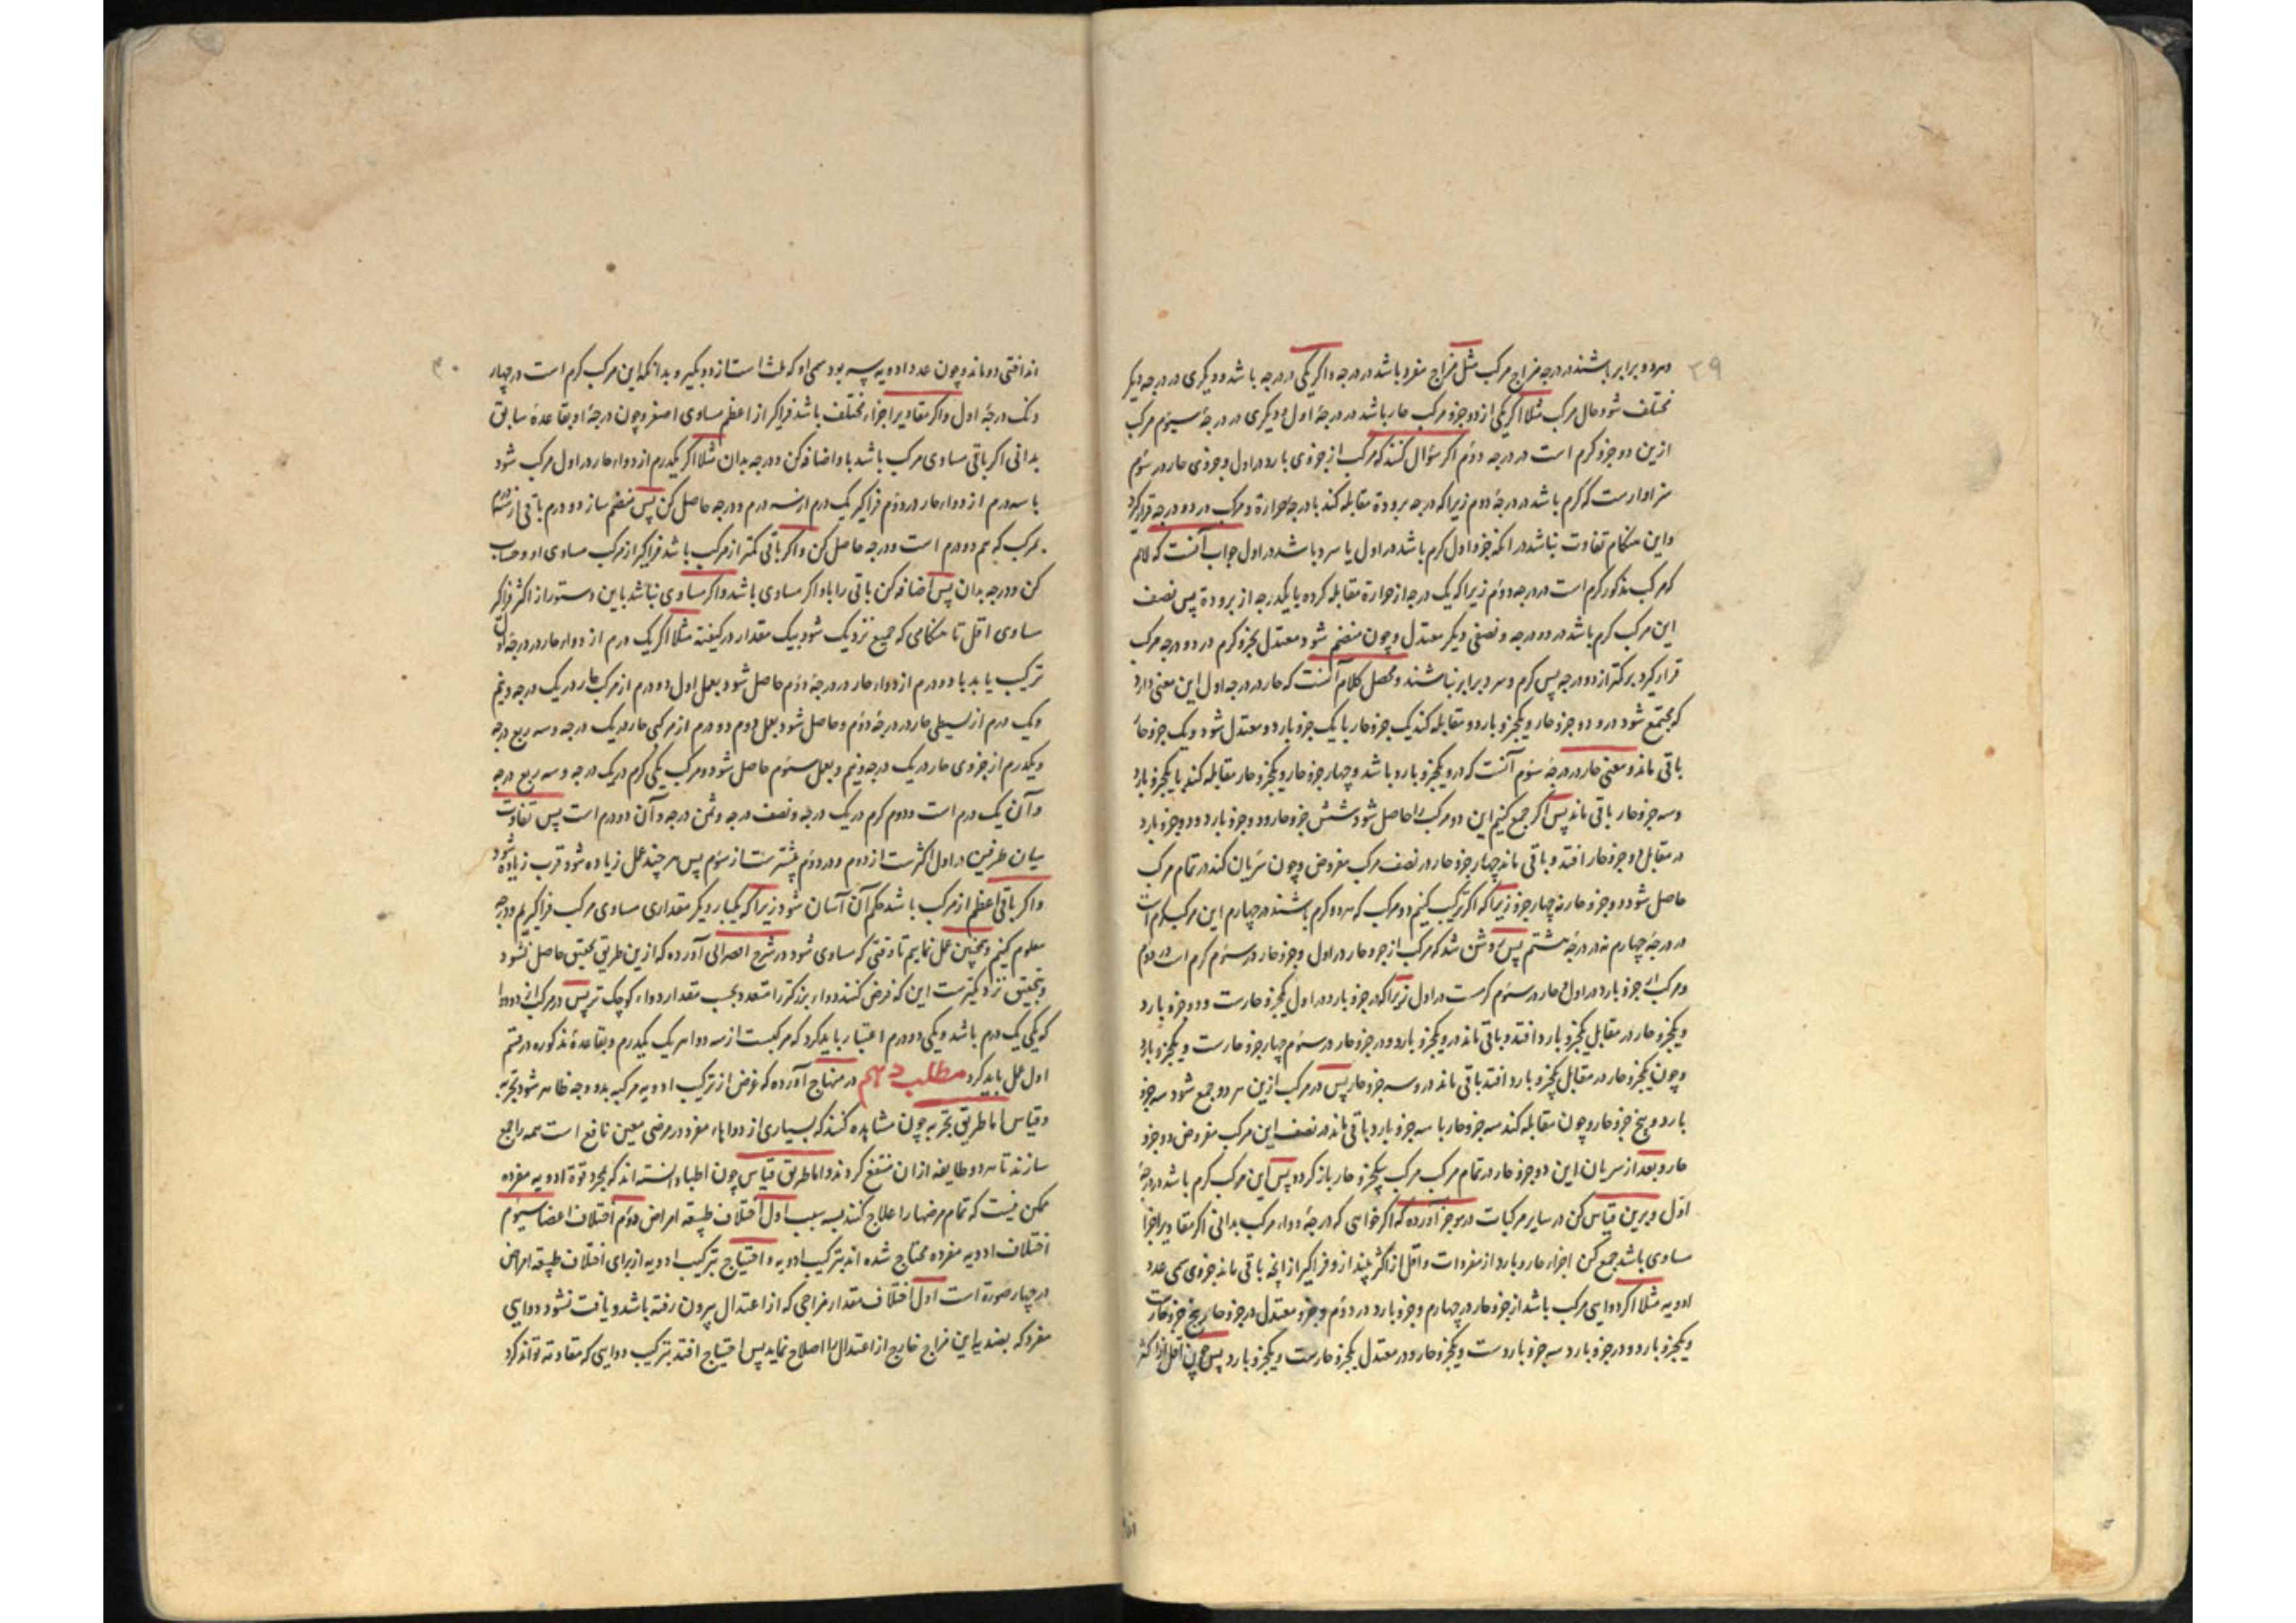 ۳۹
هردو برابر باشند در درجه مزاج مرکب مثل مزاج مفرد باشد در درجه و اگر یکی در درجه باشد و دیگری در درجه دیگر
مختلف شود حال مرکب مثلا اگر یکی از دو جزو مرکب حار باشد در درجهٔ اول و دیگری در درجهٔ سیوم مرکب
ازین دو جزو گرم است در درجه دوم اگر سؤال کنند که مرکب از جزوی بارد در اول و جزوی حار در سوم
سزاوارست که گرم باشد در درجهٔ دوم زیراکه درجه برودة مقابله کند با درجه حرارة و مرکب در دو درجه قرار گیرد
و این هنگام تفاوت نباشد در آنکه جزو اول گرم باشد در اول یا سرد باشد در اول جواب آنست که لانم
که مرکب مذکور گرم است در درجه دوم زیراکه یک درجه از حرارة مقابله کرده با یکدرجه از برودة پس نصف
این مرکب گرم باشد در دو درجه و نصفی دیگر معتدل و چون منضم شود معتدل بجزو گرم در دو درجه مرکب
قرار گیرد بر کمتر از دو درجه پس گرم و سرد برابر نباشند و محصل کلام آنست که حار در درجه اول این معنی دارد
که مجتمع شود درو دو جزو حار و یکجزو بارد و مقابله کند یک جزو حار با یک جزو بارد و معتدل شود و یک جزو حار
باقی ماند و معنی حار در درجهٔ سوم آنست که درو یکجزو بارد باشد و چهار جزو حار و یکجزو حار مقابله کند با یکجزو بارد
و سه جزو حار باقی ماند پس اگر جمع کنیم این دو مرکب را حاصل شود شش جزو حار و دو جزو بارد و دو جزو بارد
در مقابل دو جزو حار افتد و باقی ماند چهار جزو حار در نصف مرکب مفروض و چون سریان کند در تمام مرکب
حاصل شود دو جزو حار نه چهار جزو زیرا که اگر ترکیب کنیم دو مرکب که هردو گرم باشند در چهارم این مرکب گرم است
در درجهٔ چهارم نه در درجهٔ هشتم پس روشن شد که مرکب از جزو حار در اول و جزو حار در سوم گرم است در دوم
و مرکب از جزو بارد در اول و حار در سوم گرمست در اول زیراکه در جزو بارد در اول یکجزو حارست و دو جزو بارد
و یکجزو حار در مقابل یکجزو بارد افتد و باقی ماند درو یکجزو بارد و در جزو حار در سوم چهار جزو حارست و یکجزو بارد
و چون یکجزو حار در مقابل یکجزو بارد افتد باقی ماند درو سه جزو حار پس در مرکب ازین هردو جمع شود سه جزو
بارد و پنج جزو حار و چون مقابله کند سه جزو حار با سه جزو بارد باقی ماند در نصف این مرکب مفروض دو جزو
حار و بعد از سریان این دو جزو حار در تمام مرکب مرکب بیکجزو حار باز گردد پس این مرکب گرم باشد در درجهٔ
اول و برین قیاس کن در سایر مرکبات در موجز آورده که اگر خواهی که درجهٔ دواء مرکب بدانی اگر مقادیر اجزا
مساوی باشد جمع کن اجزاء حار و بارد از مفردات و اقل از اکثر بینداز و فراگیر از انچه باقی ماند جزوی سمی عدد
ادویه مثلا اگر دوایی مرکب باشد از جزو حار در چهارم و جزو بارد در دوم و جزو معتدل در جزو حار پنج جزو حارست
و یکجزو بارد و در جزو بارد سه جزو باردست و یکجزو حار و در معتدل یکجزو حارست و یکجزو بارد پس چون اقل از اکثر
۴۰
انداختی دو ماند و چون عدد ادویه سه بود سمی او که ثلث است از دو بگیر و بدانکه این مرکب گرم است در چهار
دنک درجهٔ اول و اگر مقادیر اجزاء مختلف باشد فراگیر از اعظم مساوی اصغر و چون درجهٔ او بقاعدهٔ سابق
بدانی اگر باقی مساوی مرکب باشد باو اضافه کن و درجه بدان مثلا اگر یکدرم از دواء حار در اول مرکب شود
با سه درم از دواء حار در دوم فراگیر یک درم از سه درم و درجه حاصل کن پس منضم ساز دو درم باقی از سه درم
بمرکب که هم دو درم است و درجه حاصل کن و اگر باقی کمتر از مرکب باشد فراگیر از مرکب مساوی او و حساب
کن و درجه بدان پس اضافه کن باقی را باو اگر مساوی باشد و اگر مساوی نباشد باین دستور از اکثر فراگیر
مساوی اقل تا هنگامی که جمیع نزدیک شود بیک مقدار در کیفیة مثلا اگر یک درم از دواء حار در درجهٔ اول
ترکیب یابد با دو درم از دواء حار در درجهٔ دوم حاصل شود بعمل اول دو درم از مرکب حار در یک درجه و نیم
و یک درم از بسیطی حار در درجهٔ دوم و حاصل شود بعمل دوم دو درم از مرکبی حار در یک درجه و سه ربع درجه
و یکدرم از جزوی حار در یک درجه و نیم و بعمل سوم حاصل شود دو مرکب یکی گرم در یک درجه و سه ربع درجه
و آن یک درم است و دوم گرم در یک درجه و نصف درجه و ثمن درجه و آن دو درم است پس تفاوت
میان طرفین در اول اکثرست از دوم و در دوم بیشترست از سوم پس هرچند عمل زیاده شود قرب زیاده شود
و اگر باقی اعظم از مرکب باشد حکم آن آسان شود زیراکه یکبار دیگر مقداری مساوی مرکب فراگیریم و درجه
معلوم کنیم و همچنین عمل نماییم تا وقتی که مساوی شود در شرح آورده که ازین طریق تحقیق حاصل نشود
و بتحقیق نزدیکترست این که فرض کنند دواء بزرگتر را متعدد بحسب مقدار دواء کوچک تر پس در مرکب از دو دوا
که یکی یک درم باشد و یکی دو درم اعتبار باید کرد که مرکبست از سه دوا هریک یکدرم و بقاعدهٔ مذکوره در قسم
اول عمل باید کرد مطلب دهم در منهاج آورده که غرض از ترکیب ادویه مرکبه بدو وجه ظاهر شود تجربه
و قیاس اما طریق تجربه چون مشاهده کنند که بسیاری از دواهاء مفرد در مرضی معین نافع است همه را جمع
سازند تا هر دو طایفه ازان منتفع گردند و اما طریق قیاس چون اطبا دانسته اند که بمجرد قوة ادویه مفرده
ممکن نیست که تمام مرضها را علاج کنند بسه سبب اول اختلاف طبیعة امراض دوم اختلاف اعضا سیوم
اختلاف ادویه مفرده محتاج شده اند بترکیب ادویه و احتیاج بترکیب ادویه از برای اختلاف طبیعة امراض
در چهار صورة است اول اختلاف مقدار مزاجی که از اعتدال بیرون رفته باشد و یافت نشود دوایی
مفرد که بضدیة این مزاج خارج از اعتدال را اصلاح نماید پس احتیاج افتد بترکیب دوایی که مقاومة تواند کرد